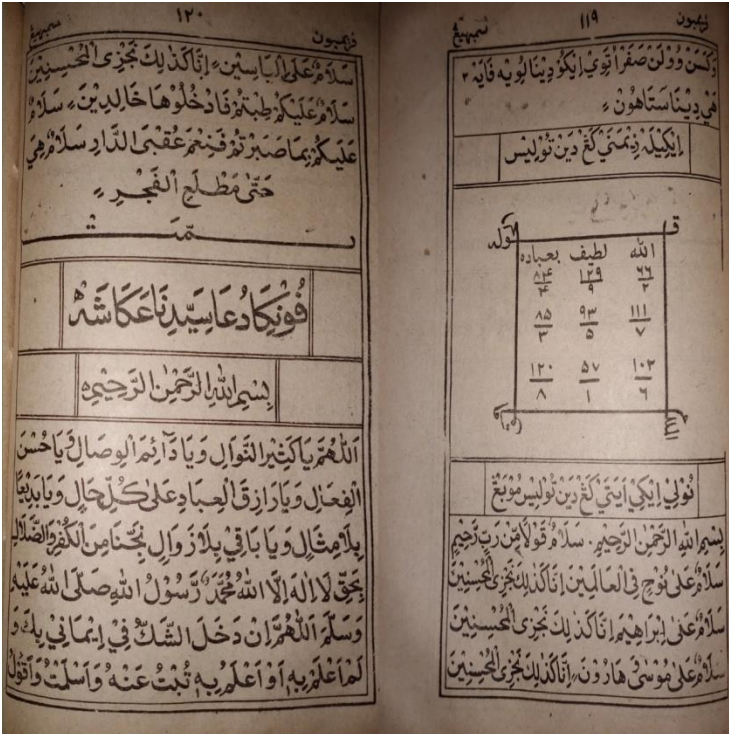 فريمبون ١١٩ سمبهيڠ
وَكَسَن وُولَن صَفَرْ اتَوِي اِيكُو دِينَا لُوِيه فَايَه ٢
هَيْ دِينَا سَتَاهُون
اِيكِيلَه كَڠْ دَين تُولِيس
الله لطيف بعباده
٦٦ ١٢٩ ٨٤
٢ ٩ ٤
١١١ ٩٣ ٨٥
٧ ٥ ٣
١٠٢ ٥٧ ١٢٠
٦ ١ ٨
نُولِي اِيكِي اَيَتَي كَڠْ دَين تُولِيس مُوبَڠْ
بِسْمِ اللهِ الرَّحْمٰنِ الرَّحِيْمِ. سَلَامٌ قَوْلًا مِّنْ رَبٍّ رَّحِيْمٍ
سَلَامٌ عَلٰى نُوْحٍ فِى الْعَالَمِيْنَ اِنَّا كَذٰلِكَ نَجْزِى الْمُحْسِنِيْنَ
سَلَامٌ عَلٰى اِبْرَاهِيْمَ اِنَّا كَذٰلِكَ نَجْزِى الْمُحْسِنِيْنَ
سَلَامٌ عَلٰى مُوْسٰى وَهَارُوْنَ اِنَّا كَذٰلِكَ نَجْزِى الْمُحْسِنِيْنَ
فريمبون ١٢٠ سمبهيڠ
سَلَامٌ عَلٰى اِلْيَاسِيْنَ اِنَّا كَذٰلِكَ نَجْزِى الْمُحْسِنِيْنَ
سَلَامٌ عَلَيْكُمْ طِبْتُمْ فَادْخُلُوْهَا خَالِدِيْنَ سَلَامٌ
عَلَيْكُمْ بِمَا صَبَرْتُمْ فَنِعْمَ عُقْبَى الدَّارِ سَلَامٌ هِيَ
حَتّٰى مَطْلَعِ الْفَجْرِ
تمت
فُونِيكَا دُعَا سَيِّدِنَا عَكَاشَهْ
بِسْمِ اللهِ الرَّحْمٰنِ الرَّحِيْمِ
اَللّٰهُمَّ يَا كَثِيْرَ النَّوَالِ وَيَا دَآئِمَ الْوِصَالِ وَيَا حُسْنَ
الْفِعَالِ وَيَا رَازِقَ الْعِبَادِ عَلٰى كُلِّ حَالٍ وَيَا بَدِيْعًا
بِلَا مِثَالٍ وَيَا بَاقِيْ بِلَا زَوَالٍ نَجِّنَا مِنَ الْكُفْرِ وَالضَّلَالِ
بِحَقِّ لَا اِلٰهَ اِلَّا اللهُ مُحَمَّدٌ رَّسُوْلُ اللهِ صَلَّى اللهُ عَلَيْهِ
وَسَلَّمَ اَللّٰهُمَّ اِنْ دَخَلَ الشَّكُّ فِيْ اِيْمَانِيْ بِكَ وَ
لَمْ اَعْلَمْ بِهٖ اَوْ اَعْلَمُ بِهٖ تُبْتُ عَنْهُ وَاَسْلَمْتُ وَاَقُوْلُ